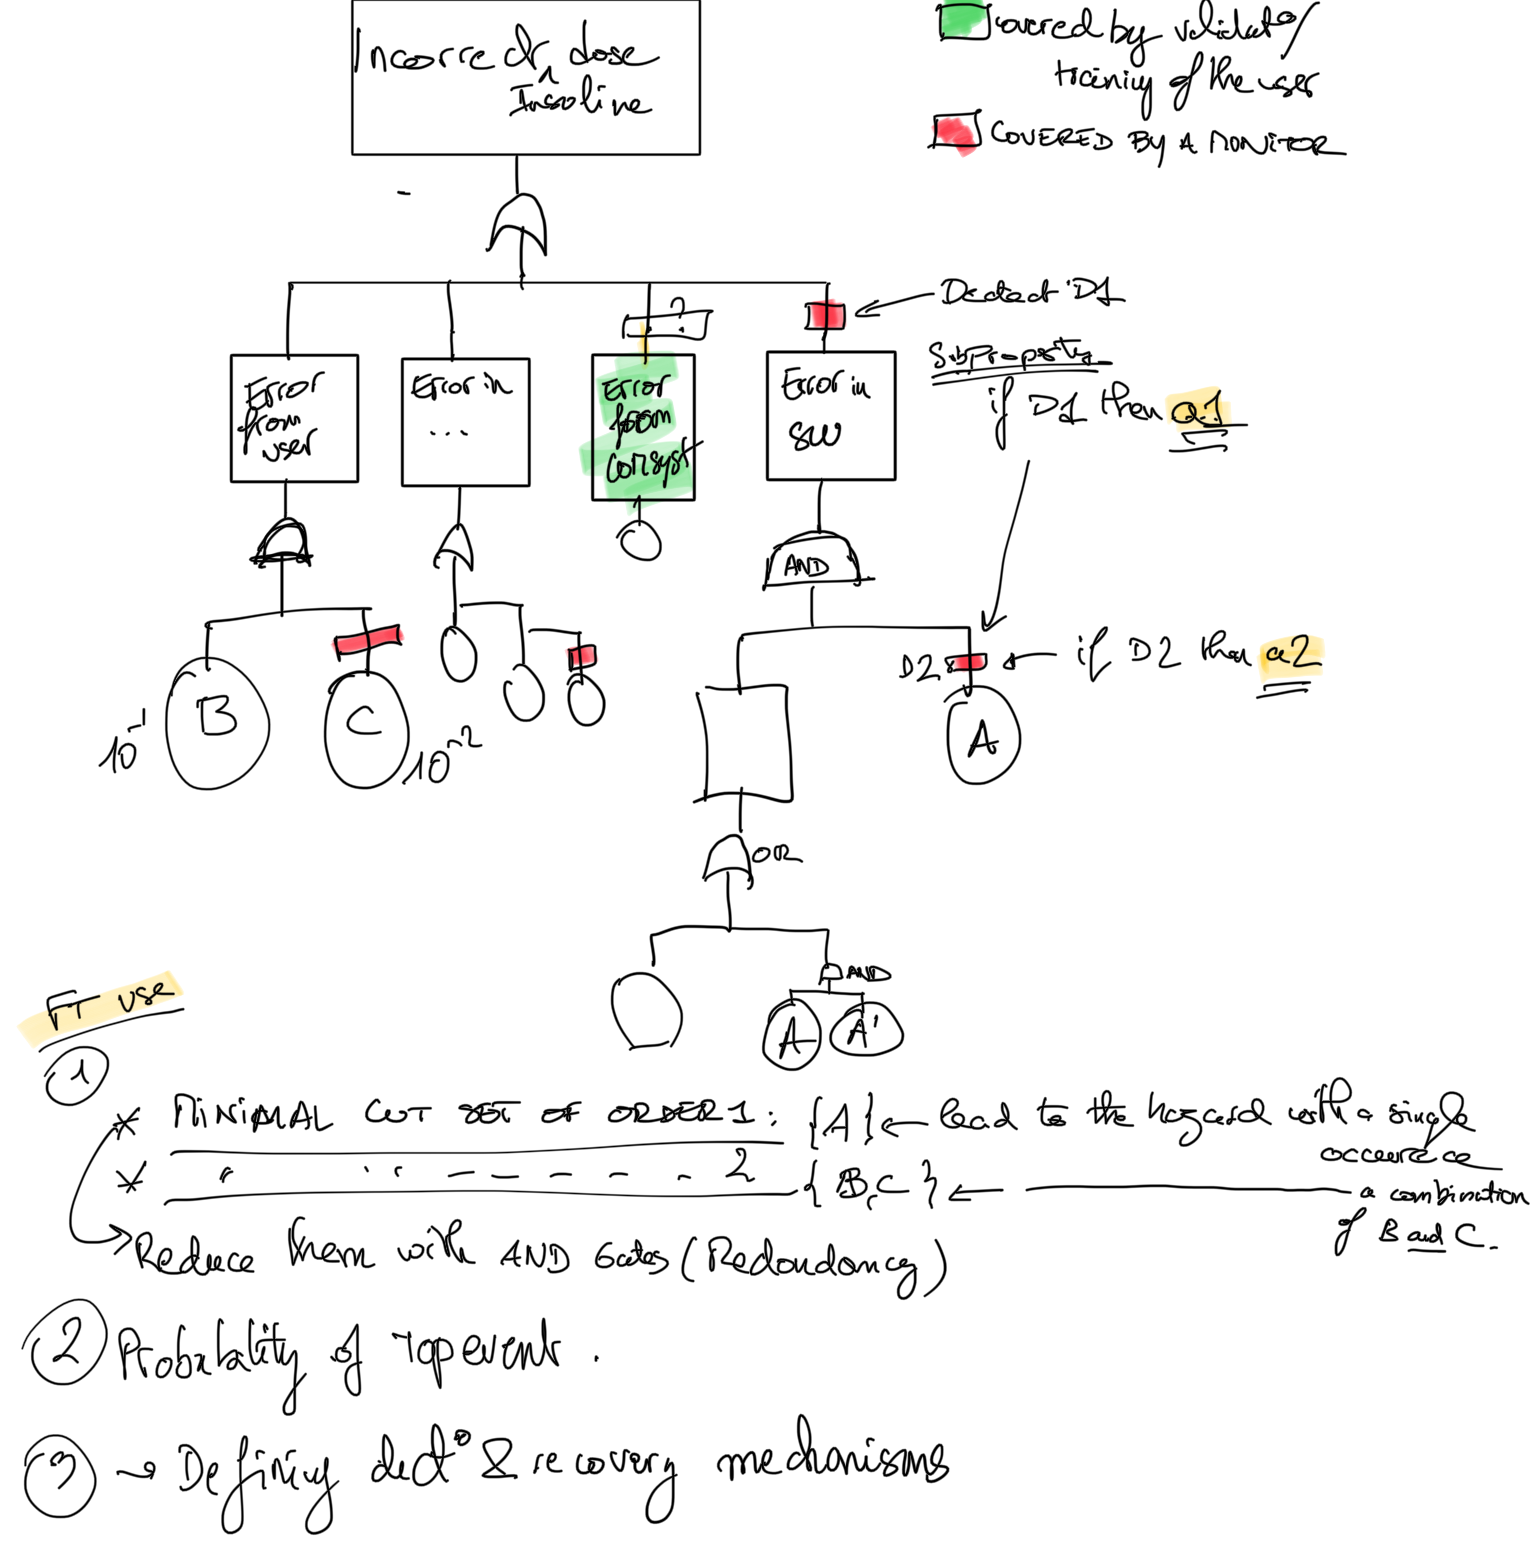 Incorrect dose
Insoline
covered by validat°/
training of the user
COVERED BY A MONITOR
Detect D1
SubProperty
if D1 then a1
?
Error
from
user
Error in
...
Error
from
Error in
SW
AND
D2
if D2 then a2
B
C
A
10^-1
10^-2
OR
AND
A
A'
FT use
1
* MINIMAL CUT SET OF ORDER 1: {A} ← lead to the hazard with a single
occurence
* " " — — — — - 2 {B,C} ← a combination
of B and C.
→ Reduce them with AND Gates (Redondancy)
2 Probability of Top event.
3 → Defining dect° & recovery mechanisms